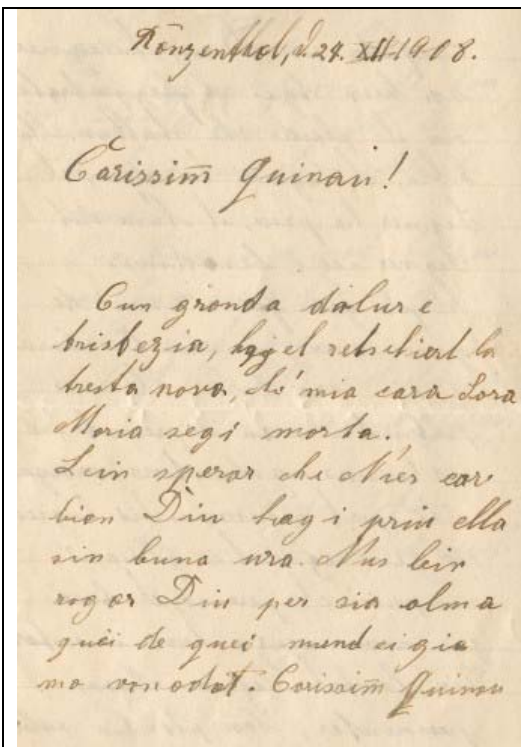 d. 24. XII 1908.
Carissim̄ Quinau!
Cun gronda dolur e
tristezia, hagi el retschiert la
tresta nova, ch' mia cara Sora
Maria segi morta.
Lein sperar che Nies car
bien Diu hagi priu ella
sin buna ura. Nus lein
rogar Diu per sia olma
quei de quei mund ei gia
mo vonadat. Carissim̄ Quinau